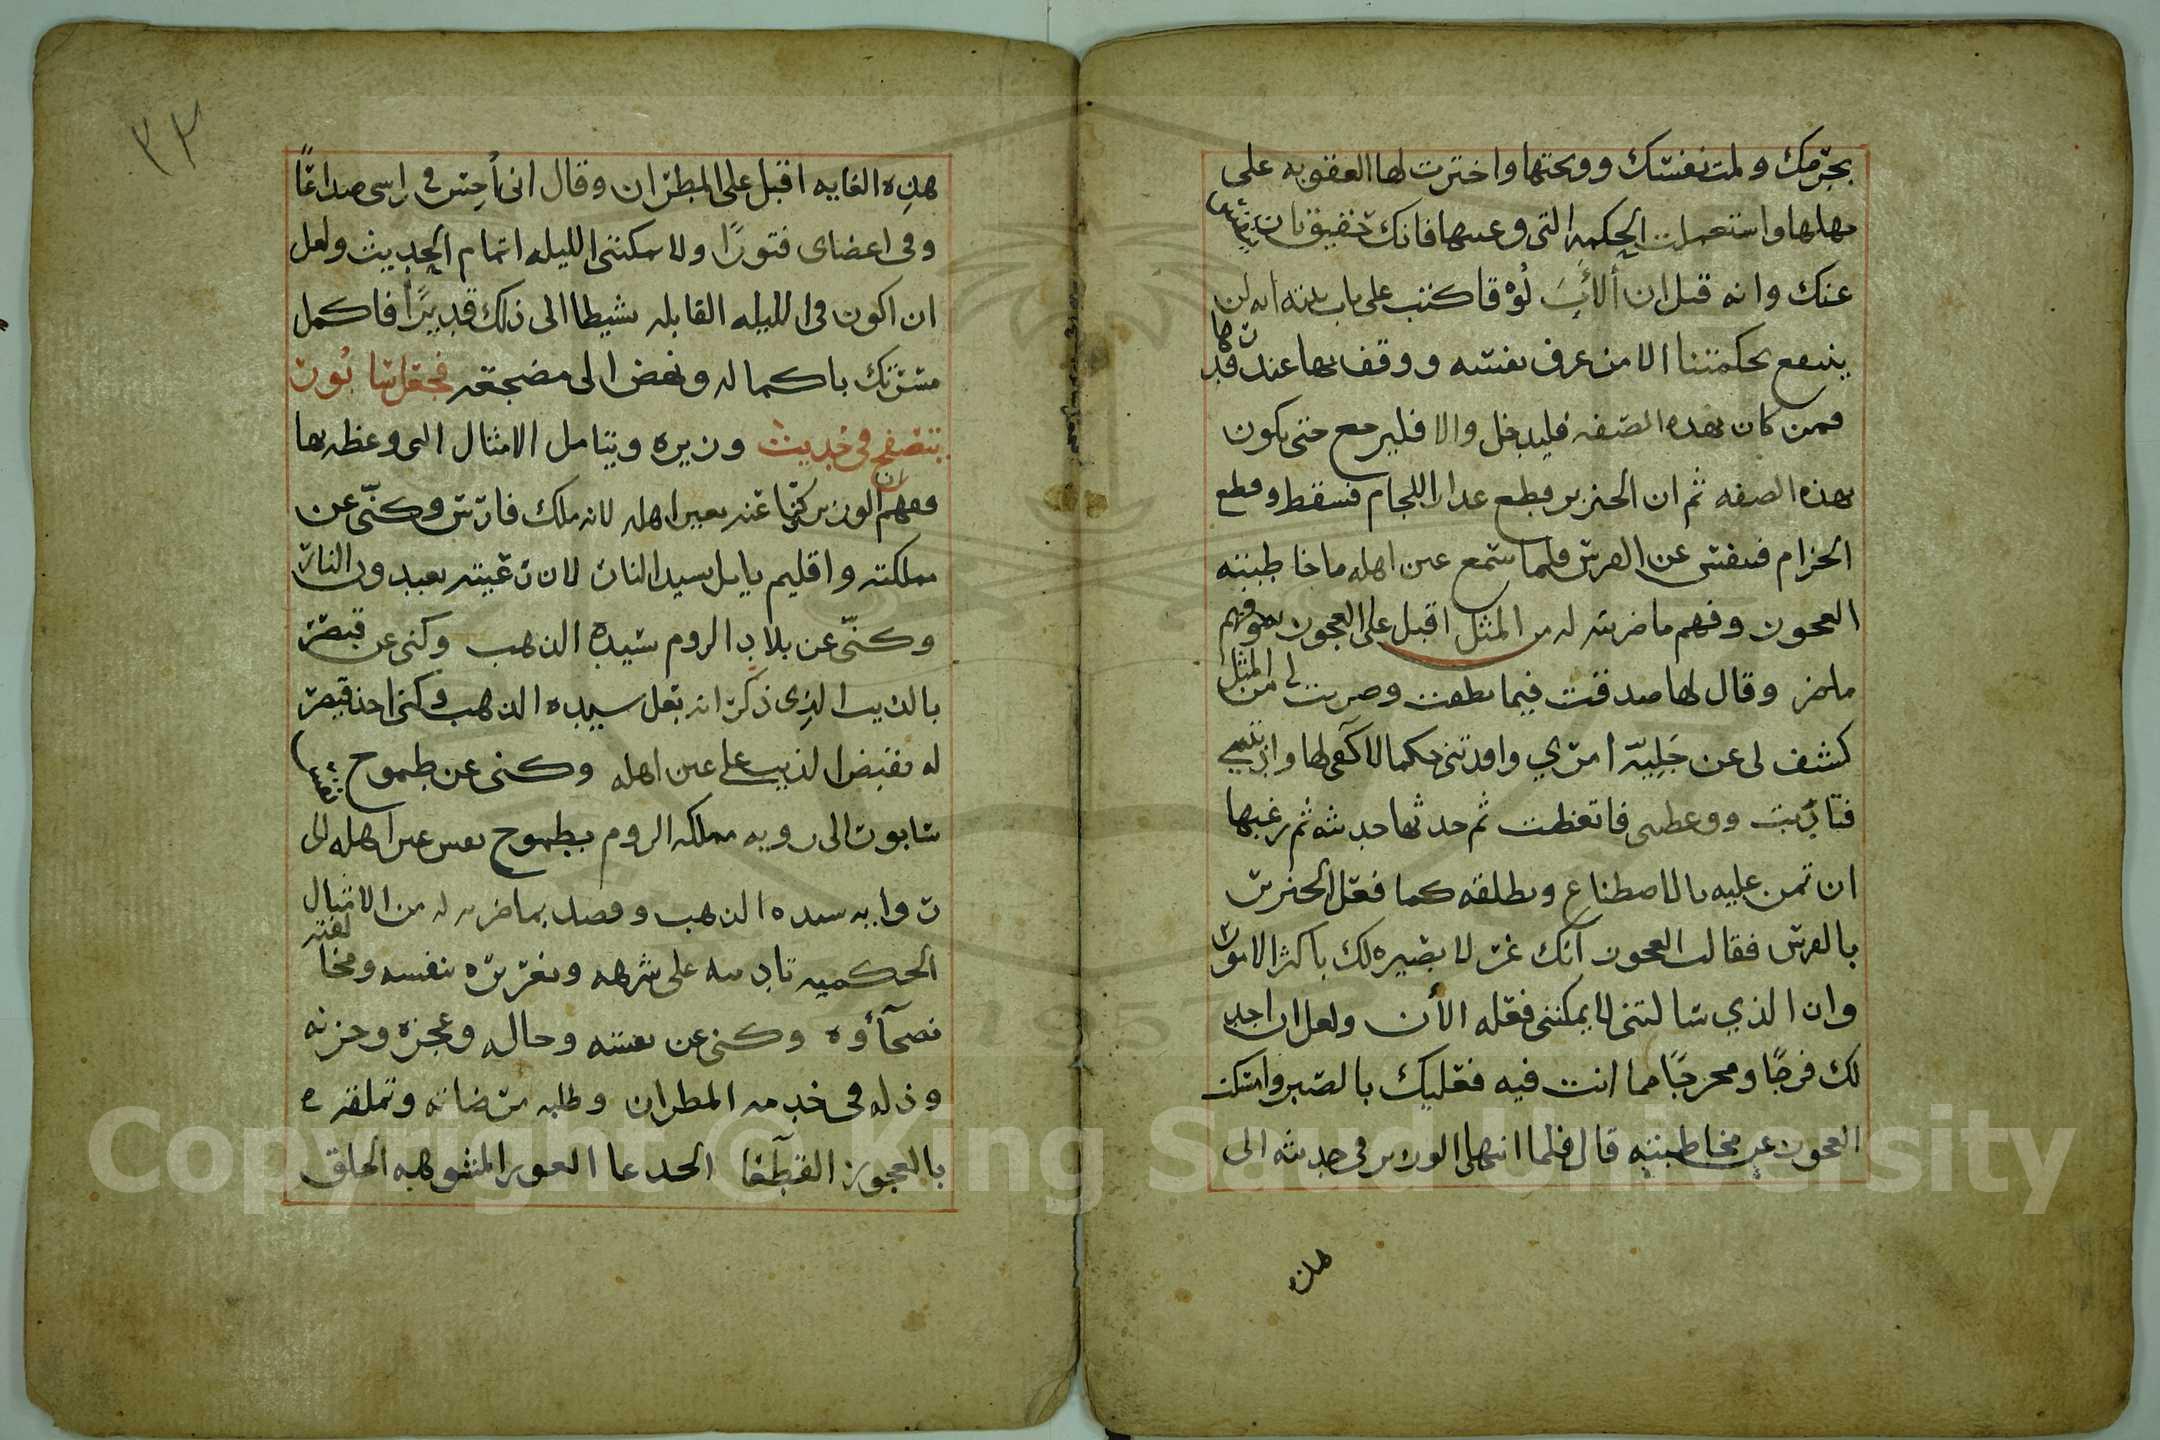 بجرمك ولمت نفسك ووبختها واخترت لها العقوبه على
جهلها واستعملت الحكمه التي وعيتها فانك حقيق بان
عنك وانه قيل ان ألأبَسَ لُوْقا كتب على باب بيته انه لن
ينتفع بحكمتنا الا من عرف نفسه ووقف بها عند قدرها
فمن كان بهذه الصفه فليدخل والا فليرجع حتى يكون
بهذه الصفه ثم ان الخنزير قطع عذار اللجام فسقط وقطع
الحزام فنفس عن الفرس فلما سمع عين اهله ما خاطبته
العجوز وفهم ما ضربته له من المثل اقبل على العجوز
وقال لها صدقت فيما نطقت وضربت لي من المثل
كشف لى عن جَلِيّه امري وافدتني حكما لا كفى لها وادبتني
فتادبت ووعظتني فاتعظت ثم حدثها حديثه ثم رغبها
ان تمن عليه بالاصطناع وتطلقه كما فعل الخنزير
بالفرس فقالت العجوز انك غر لا بصيره لك باكثر الامور
وان الذي سالتني لا يمكنني فعله الأن ولعل ان اجد
لك فرجًا ومخرجًا مما انت فيه فعليك بالصبر وامسكت
العجوز عن مخاطبته قال فلما انتهى الوزير في حديثه الى
هذه
٣٣
هذِه الغايه اقبل على المطران وقال انى أحِس في راسى صداعًا
وفى اعضاى فتورًا ولا يمكنني الليله اتمام الحديث ولعل
ان اكون في الليله القابله نشيطا الى ذلك قديرًا فاكمل
مسرتك باكماله ونهض الى مضجعه فجعل سابُور
يتصفح في حديث وزيره ويتامل الامثال التى وعظه بها
ففهم ان الوزير كنّا عنه بعين اهله لانه ملك فارس وكنّى عن
مملكته واقليم بابل بسيد النار لان رعيته يعبدون النار
وكنّى عن بلاد الروم بسيده الذهب وكنى عن قيصر
بالذيب الذِى ذكر انه بعل سيده الذهب وكنى اخذ قيصر
له بقبض الذيب على عين اهله وكنى عن طموح
سابور الى رويه مملكه الروم بطموح نفس عين اهله الى
روايه سيده الذهب وقصد بما ضربه له من الامثال
الحكميه تاديبه على شرهه وتغريره بنفسه ومخالفته
نصحآؤه وكنى عن نفسه وحاله وعجزه وحزنه
وذله في خدمه المطران وطلبه مرضاته وتملقه
بالعجوز القطعا الجدعا العورا المشوهه الخلق